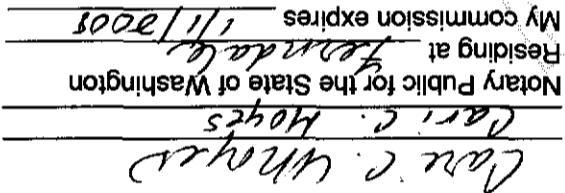 Cari C. Moyes
Cari C. Moyes
Notary Public for the State of Washington
Residing at Ferndale
My commission expires 1/1/2008